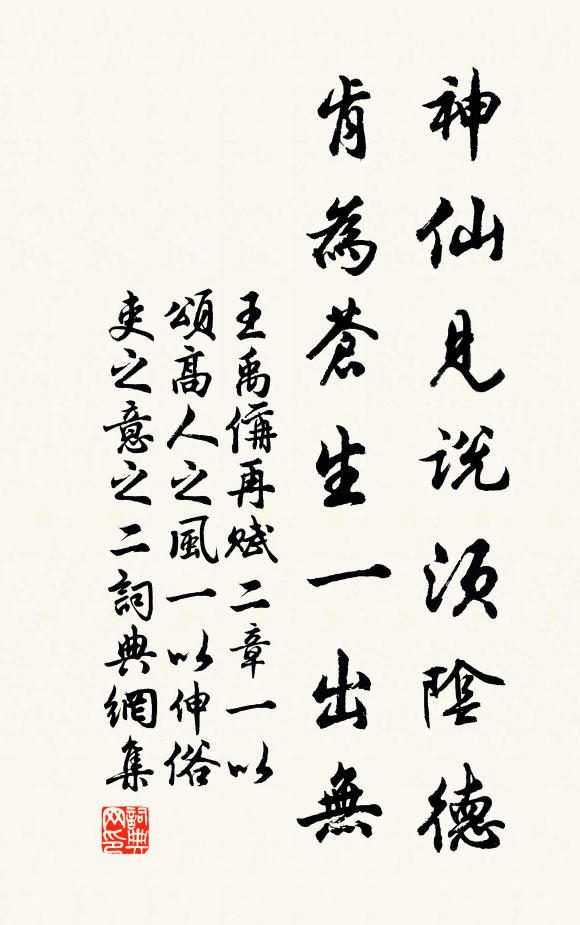 神仙見說須陰德
肯為蒼生一出無
王禹偁再賦二章一以
頌高人之風一以伸俗
吏之意之二詞典網集
詞典
网印